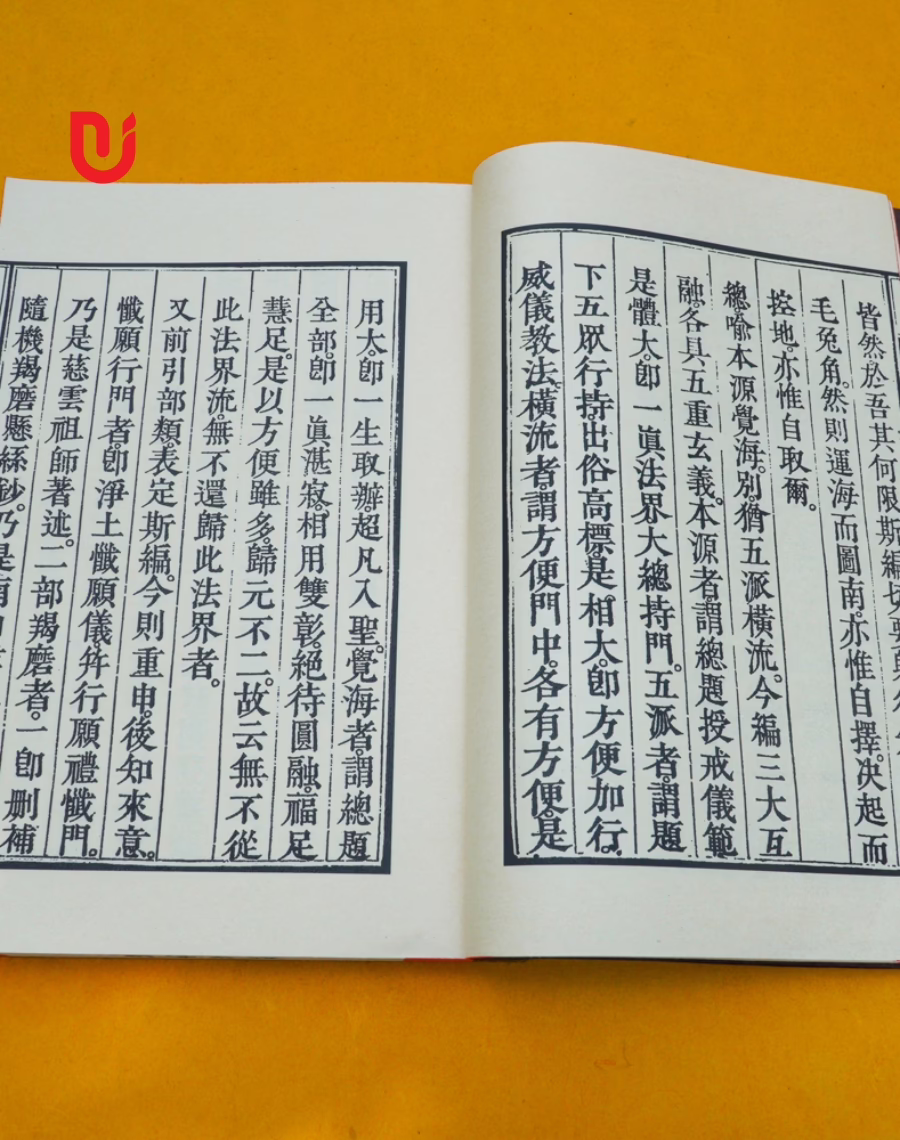 皆然於吾其何限斯編切要
毛兔角。然則運海而圖南。亦惟自擇。決起而
控地。亦惟自取爾。
總喻本源覺海。別猶五派橫流。今編三大互
融。各具五重玄義。本源者。謂總題授戒儀範
是體大。卽一眞法界大總持門。五派者。謂題
下五眾行持出俗高標。是相大。卽方便加行。
威儀教法橫流者。謂方便門中。各有方便。是
用大。卽一生取辦。超凡入聖。覺海者。謂總題
全部。卽一眞湛寂。相用雙彰。絕待圓融。福足
慧足。是以方便雖多。歸元不二。故云無不從
此法界流。無不還歸此法界者。
又前引部類。表定斯編。今則重申。後知來意。
懺願行門者。卽淨土懺願儀。幷行願禮懺門。
乃是慈雲祖師著述。二部羯磨者。一卽刪補
隨機羯磨懸絲鈔。乃是南